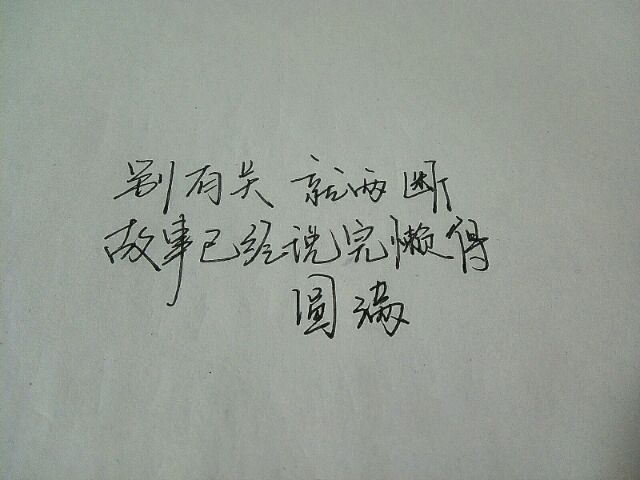 别有关 就两断
故事已经说完懒得
圆满